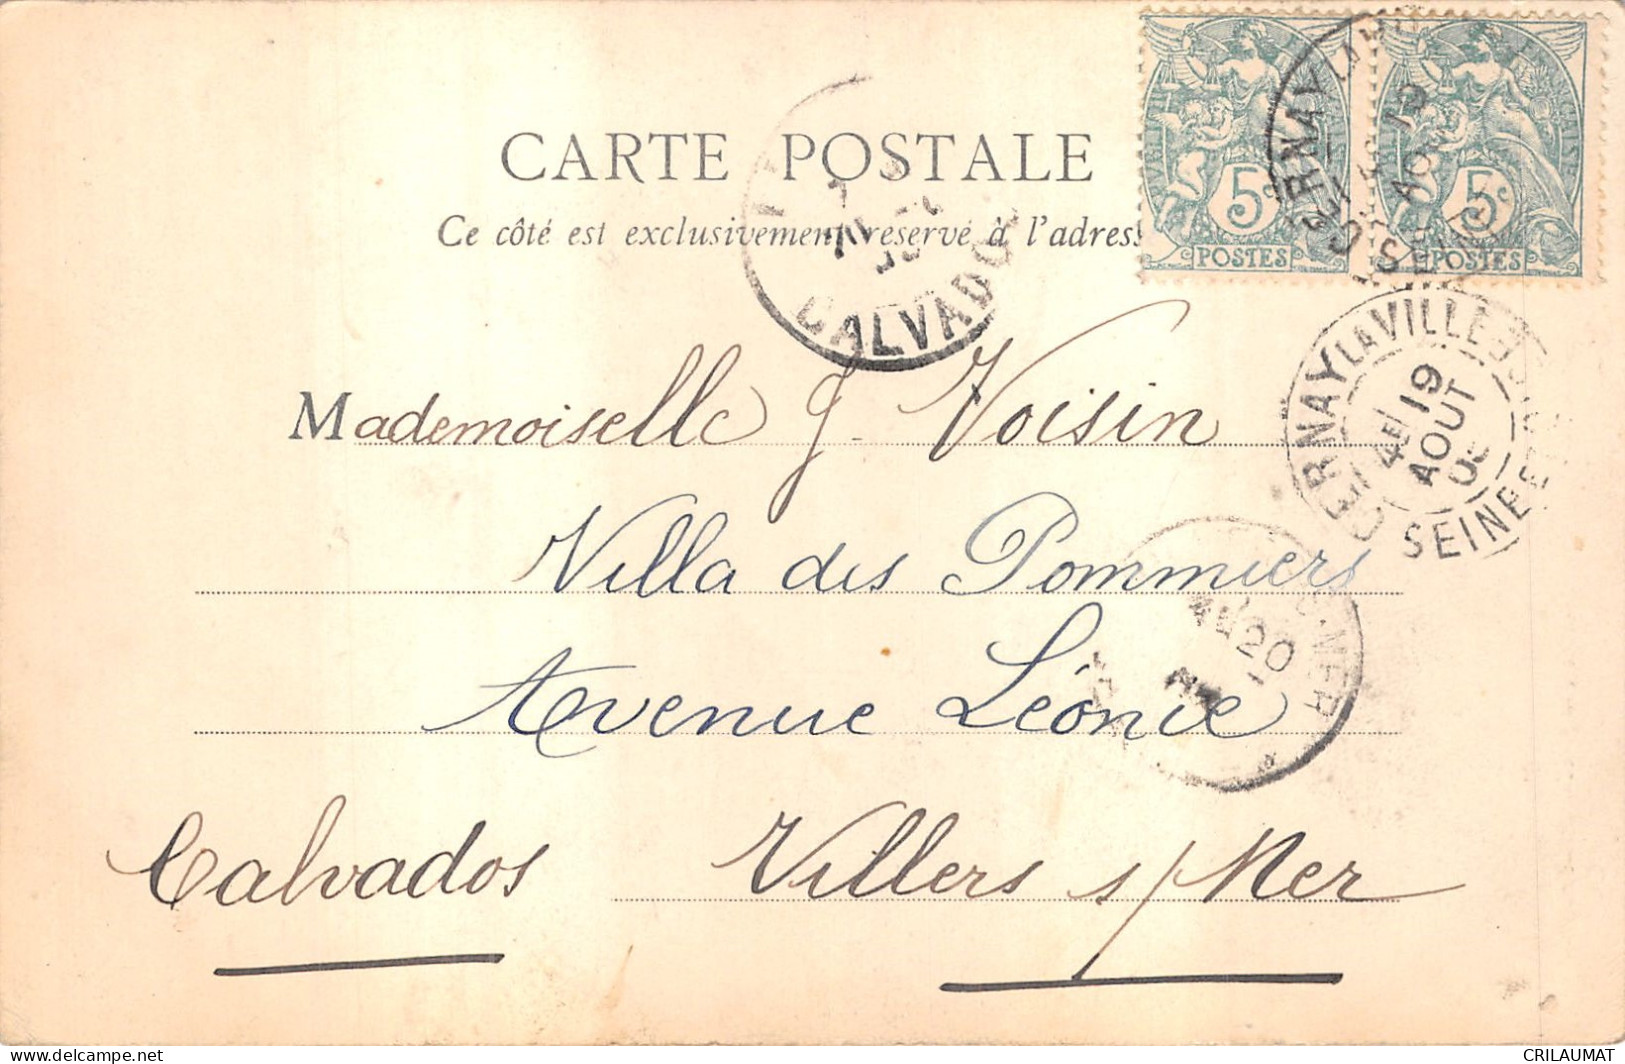 CARTE POSTALE
Ce côté est exclusivement réservé à l'adresse
5c 5c
POSTES POSTES
CALVADOS
CERNAY LA VILLE
4E 19
AOUT
05
SEINE
Mademoiselle G. Voisin
Villa des Pommiers
20
MER
Avenue Léonie
Calvados Villers s/Mer
CRILAUMAT